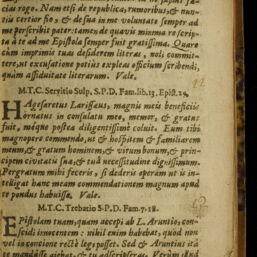 cias rogo. Nam etsi de republica, rumoribus, & nun-
tior fio, & de sua in me voluntate semper ad
me perscribit pater: tamen de quavis minima re scrip-
ta à te ad me Epistola semper fuit gratissima. Quare
cum imprimis tuas desiderem literas, noli commit-
tere, ut excusatione potius expleas officium scribendi,
quàm assiduitate literarum. Vale.
M.T.C. Servitio Sulp. S.P.D. Fam. lib. 13, Epist. 25.
HAgesaretus Larissæus, magnis meis beneficiis
ornatus in consulatu meo, memor, & gratus
fuit, meque postea diligentissimè coluit. Eum tibi
magnopere commendo, ut & hospitem & familiarem
meum, & gratum hominem, & virum bonum, & prin-
cipem civitatis suæ, & tuâ necessitudine dignissimum.
Pergratum mihi feceris, si dederis operam ut is in-
telligat hanc meam commendationem magnum apud
te pondus habuisse. Vale.
M.T.C. Trebatio S.P.D. Fam. 7.18.
EPistolam tuam, quam accepi ab L. Aruntio, con-
scidi innocentem: nihil enim habebat, quod non
vel in concione rectè legi posset. Sed & Aruntius ità
te mandasse aiebat, & tu adscripseras. Verùm